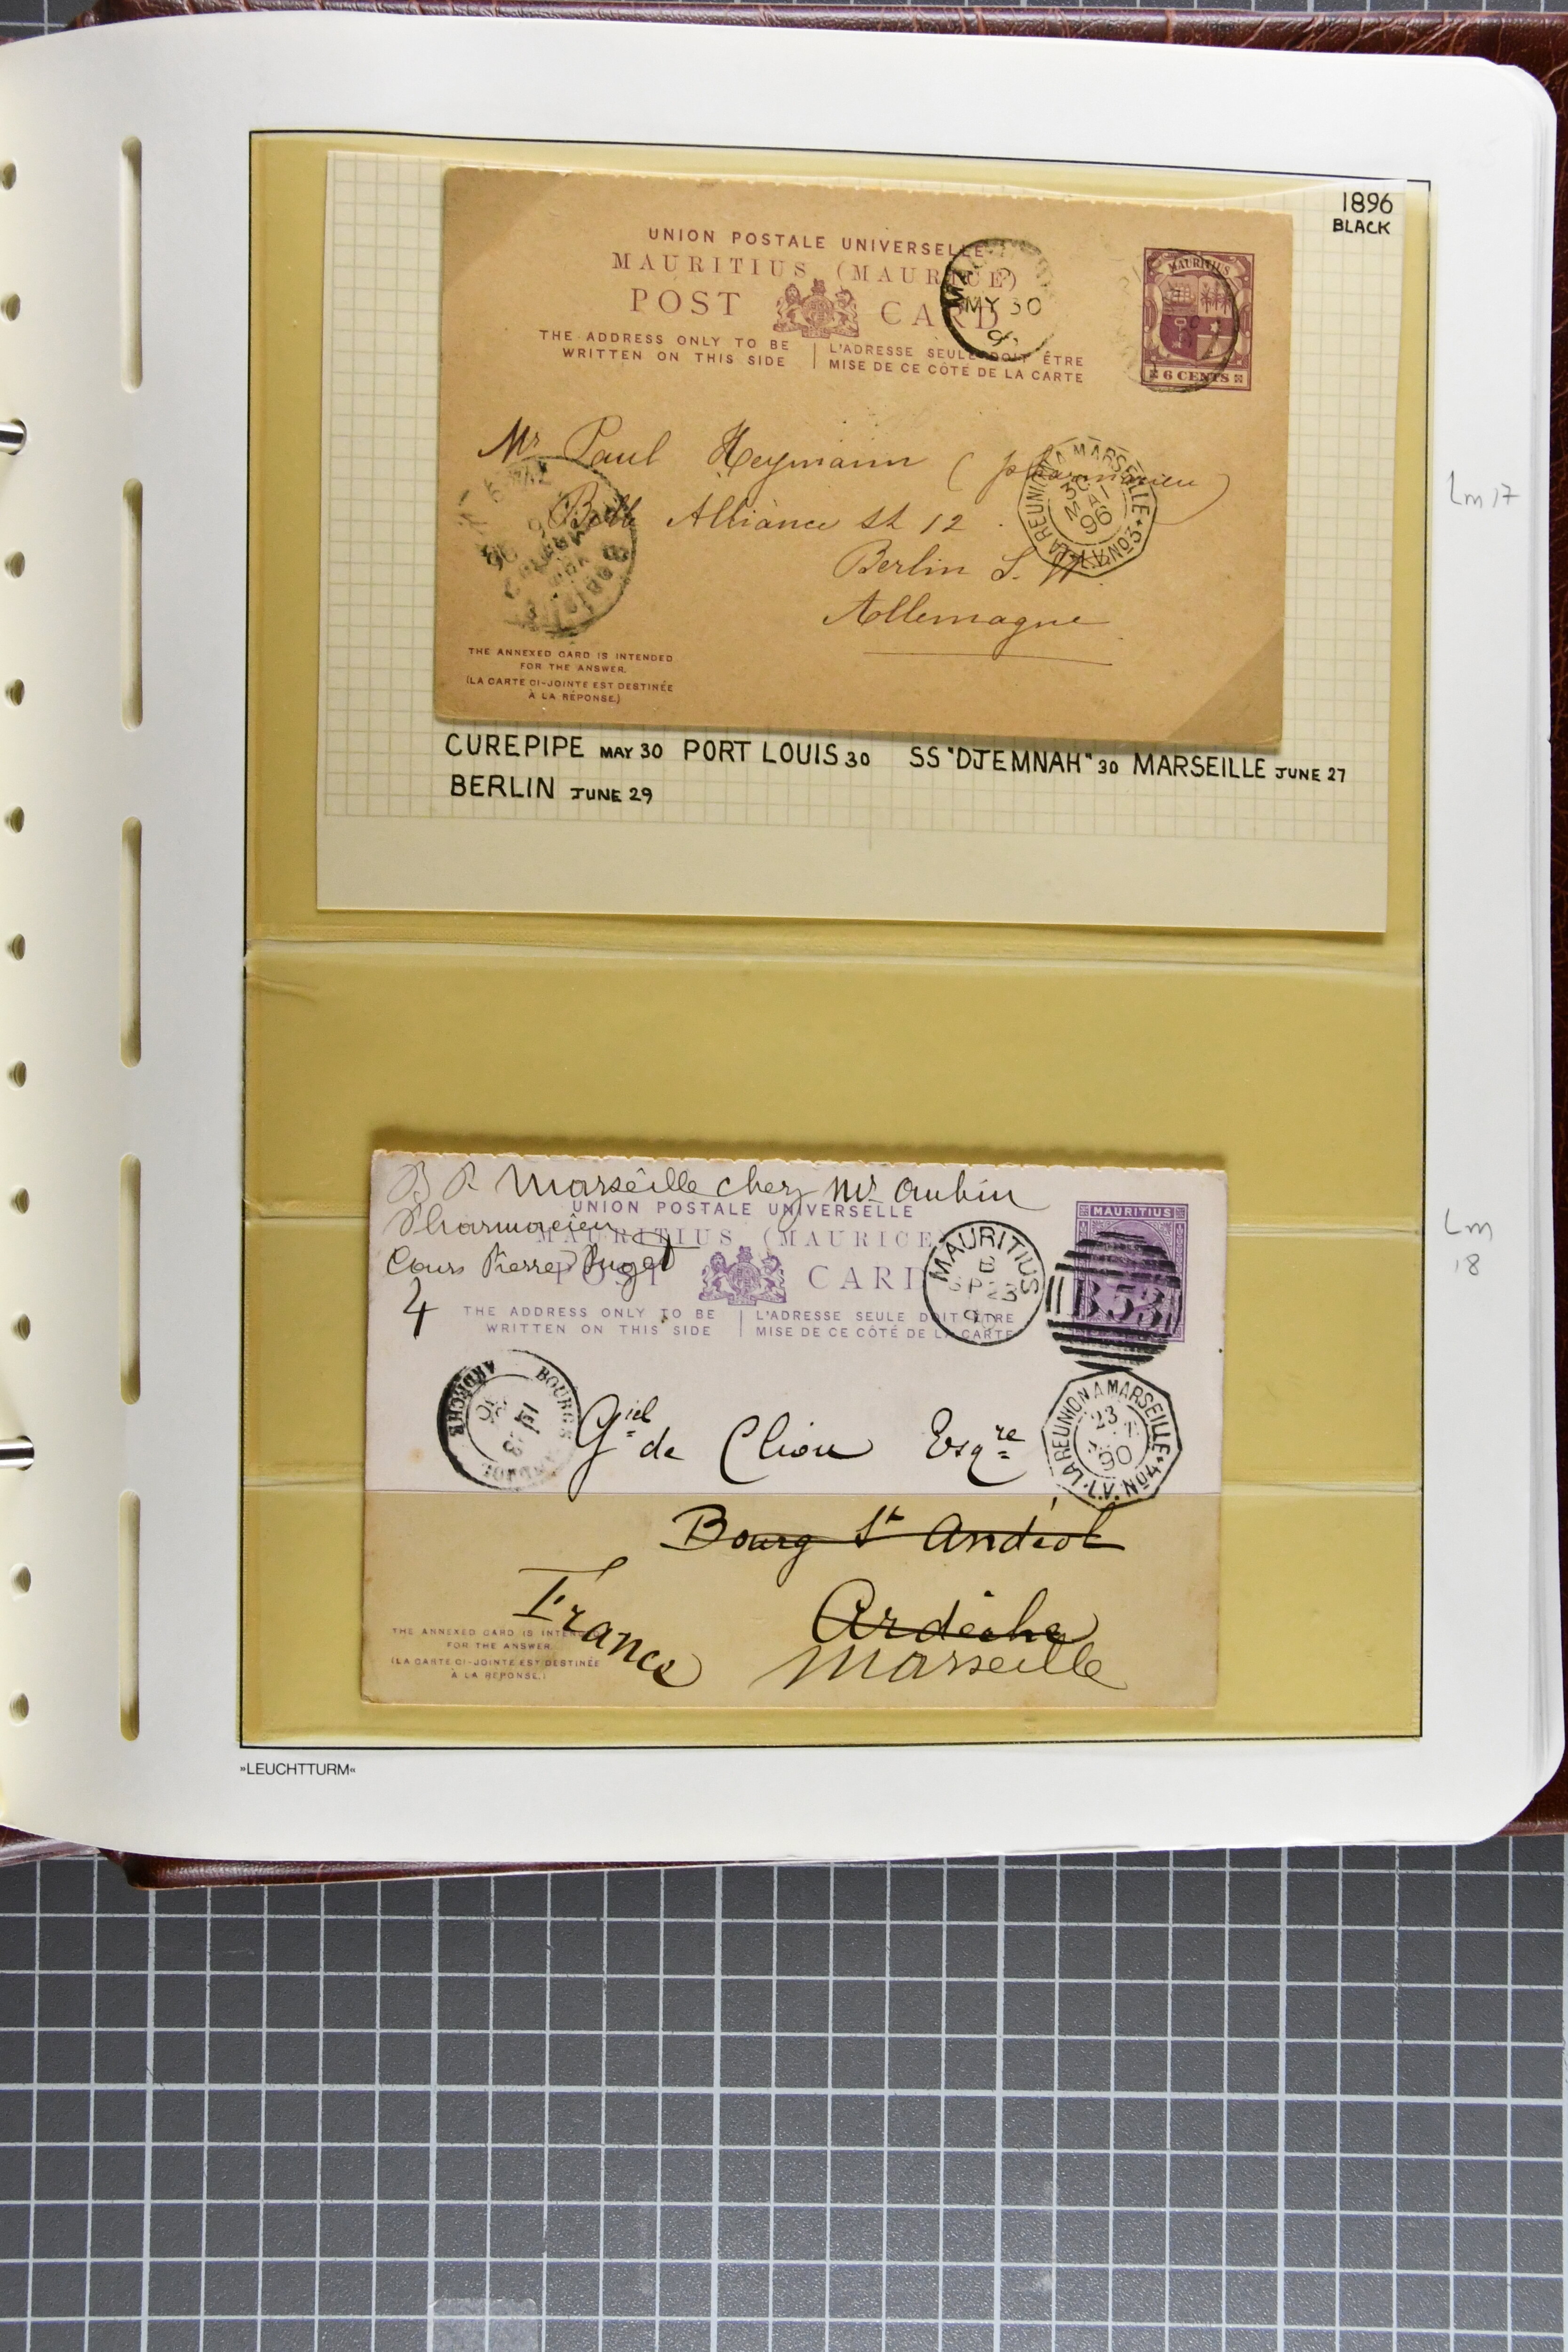 1896
BLACK
UNION POSTALE UNIVERSELLE
MAURITIUS (MAURICE)
POST CARD
THE ADDRESS ONLY TO BE
WRITTEN ON THIS SIDE
L'ADRESSE SEULE DOIT ÊTRE
MISE DE CE CÔTÉ DE LA CARTE
MY 30
MAURITIUS
6 CENTS
Mr Paul Heymann (pharmacien)
Belle Alliance St 12
Berlin S. W.
Allemagne
LA REUNION A MARSEILLE
MAI
96
THE ANNEXED CARD IS INTENDED
FOR THE ANSWER.
(LA CARTE CI-JOINTE EST DESTINÉE
À LA RÉPONSE.)
CUREPIPE MAY 30 PORT LOUIS 30 SS "DJEMNAH" 30 MARSEILLE JUNE 27
BERLIN JUNE 29
Lm 17
Marseille chez Mr Aubin
Pharmacien
Cours Pierre Puget
4
UNION POSTALE UNIVERSELLE
MAURITIUS (MAURICE
POST CARD
THE ADDRESS ONLY TO BE
WRITTEN ON THIS SIDE
L'ADRESSE SEULE DOIT ÊTRE
MISE DE CE CÔTÉ DE LA CARTE
MAURITIUS
B
SP 23
90
MAURITIUS
B53
LA REUNION A MARSEILLE
23
90
L.V. Nº4
ARDECHE
Giel de Cliou Esqre
Bourg St Andéol
Ardèche
France
Marseille
THE ANNEXED CARD IS INTENDED
FOR THE ANSWER.
(LA CARTE CI-JOINTE EST DESTINÉE
À LA RÉPONSE.)
Lm
18
»LEUCHTTURM«